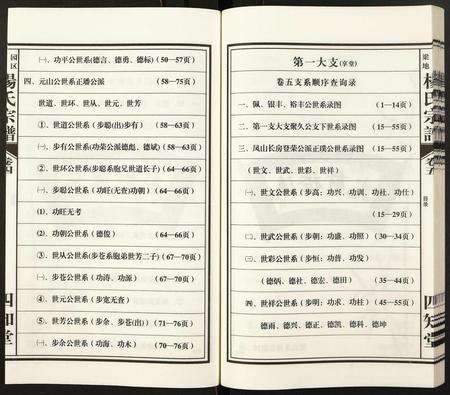 园区
楊氏宗譜
卷四
四知堂
㈠、功平公世系(德言、德勇、德标) (50—57页)
四、元山公世系正璠公派 (58—75页)
世道、世环、世从、世元、世芳
①、世道公世系（步聪(出)步有） (58—63页)
㈠、步有公世系(功荣公派德彪、德斌) (58—63页)
②、世环公世系(步聪系胞兄世道长子) (64—66页)
㈠、步聪公世系（功旺(无查)功朝） (64—66页)
⑴、功旺无考
⑵、功朝公世系（德俊） (64—66页)
③、世从公世系(步苍系胞弟世芳二子) (67—70页)
㈠、步苍公世系（功涛、功派） (67—70页)
④、世元公世系（步宽无查）
⑤、世芳公世系（步余、步苍(出)） (71—76页)
㈠、步余公世系（功海、功木） (70—76页)
第一大支(享堂)
卷五支系顺序查询录
一、佩、银丰、裕丰公世系录图 (1—14页)
二、第一支大支聚久公支下世系录图 (15—55页)
三、凤山长房登荣公派正璞公世系录图 (15—55页)
(世文、世武、世彩、世祥)
㈠、世文公世系（步高：功兴、功训、功杜、功仕）
(15—29页)
㈡、世武公世系（步朝：功盛、功照） (30—34页)
㈢、世彩公世系（步恒：功普、功发）
（德炳、德社、德宏、德田） (35—44页)
㈣、世祥公世系（步明：功求、功柱） (45—55页)
德雨、德兴、德正、德凯、德科、德坤
梁地
楊氏宗譜
卷五
目录
四知堂